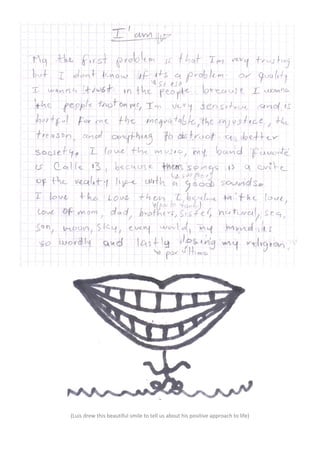 I'am
My the first problem is that I'm very trusting
but I don't know if it's a problem or quality
I wanna trust in the people, because I wanna
the people trust on me, I'm very sensitive and is
hurtful for me the inequitable, the injustice, the
treason, and anything to obstruct a better
society. I love the music, my band favorite
is Calle 13, because their songs is a write
of the reality live with a good sounds.
I love the Love then, I believe in the love,
love of mom, dad, brothers, sister, natural, sea,
son, moon, sky, every world, my
so wordly and lastly losing my religion.
por ultimo
(Luis drew this beautiful smile to tell us about his positive approach to life)